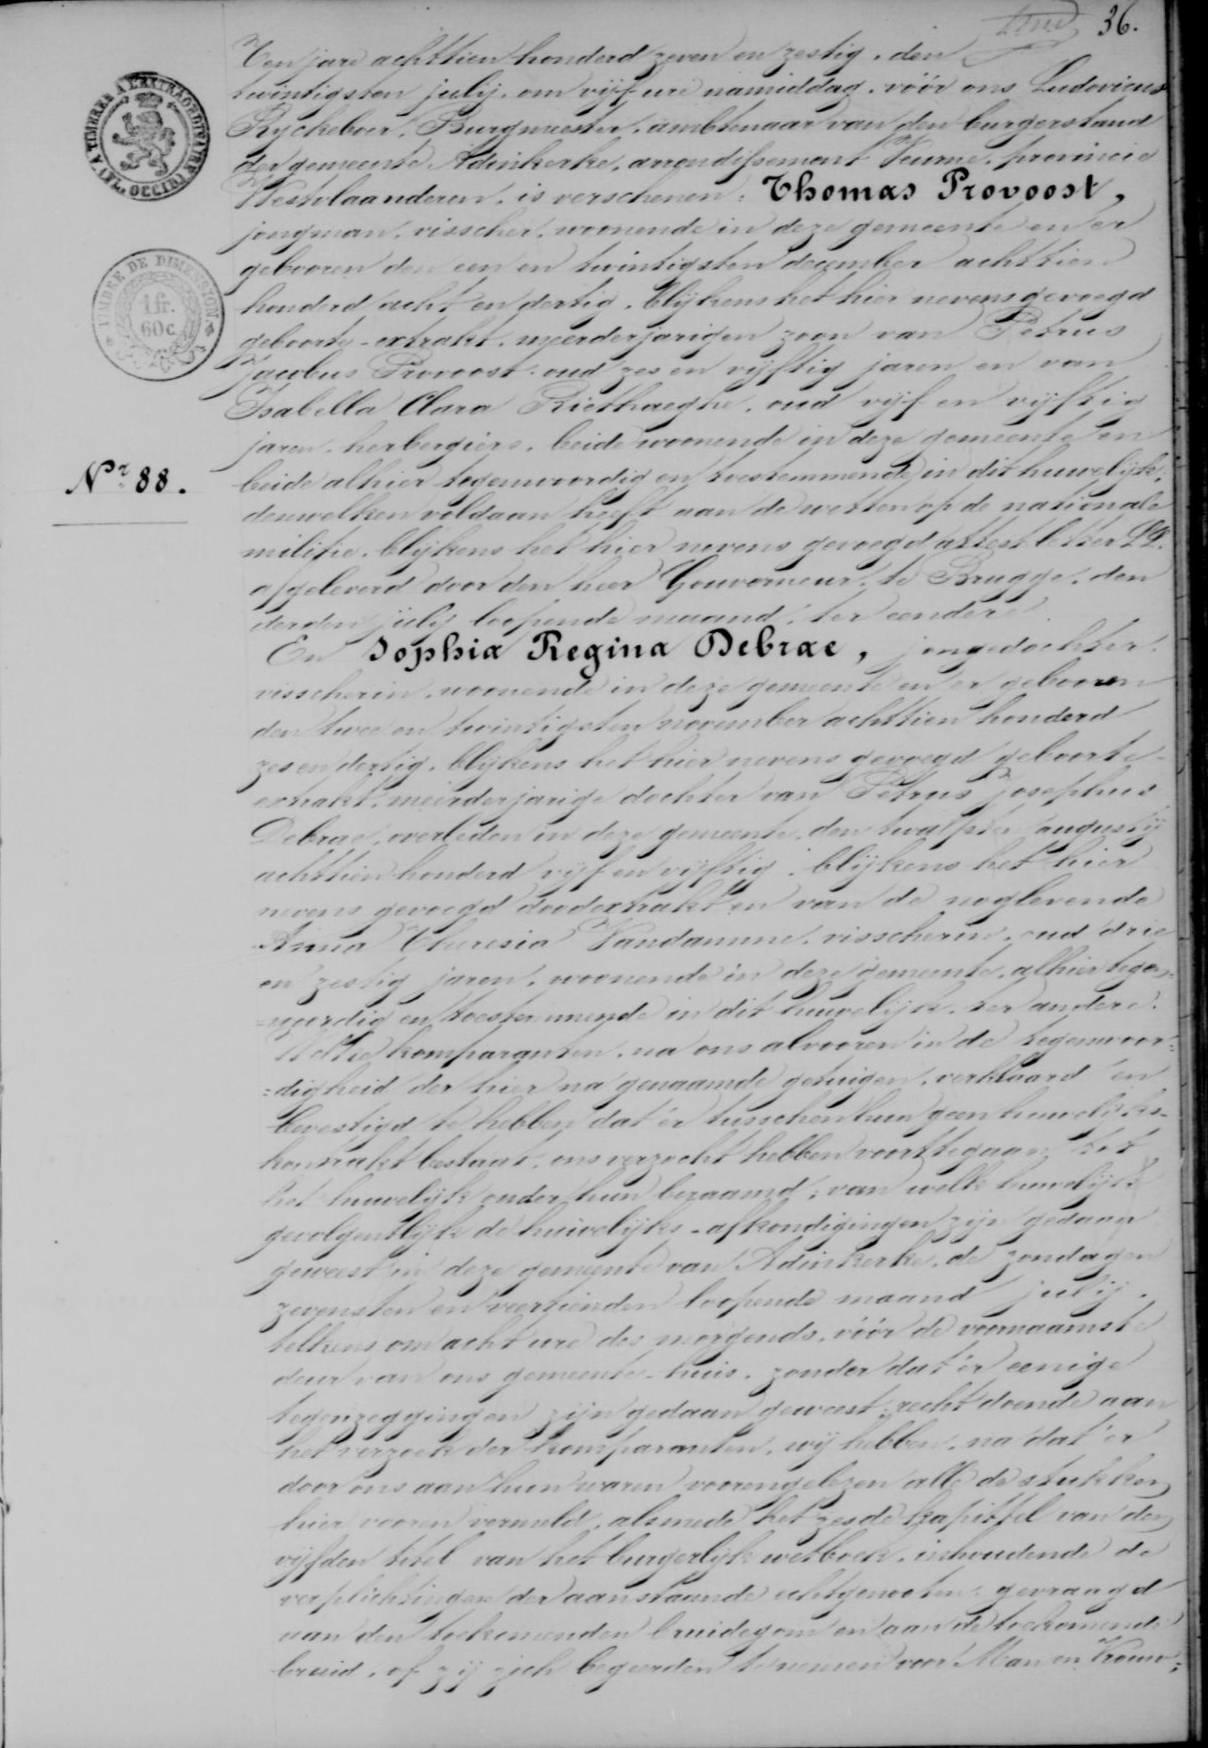 36.
Ten jare achttien honderd zeven en zestig, den
twintigsten julij, om vijf ure namiddag, vóór ons Ludovicus
Ryckeboer, Burgmeester, ambtenaar van den burgerstand
der gemeente Adinkerke, arrondissement Veurne, provincie
Westvlaanderen, is verschenen: Thomas Provoost,
jongman, visscher, woonende in deze gemeente en er
gebooren den een en twintigsten december achttien
honderd acht en dertig, blijkens het hier nevens gevoegd
geboorte-extrakt, meerderjarigen zoon van Petrus
Jacobus Provoost, oud zes en vijftig jaren en van
Isabella Clara Riethaeghe, oud vijf en vijftig
jaren, herbergiers, beide woonende in deze gemeente en
beide alhier tegenwoordig en toestemmende in dit huwelijk,
denwelken voldaan heeft aan de wetten op de nationale
militie, blijkens het hier nevens gevoegd attest letter
afgeleverd door den heer Gouverneur, te Brugge, den
derden julij loopende maand, ter eendere
En Sophia Regina Debrae, jongedochter,
visscherin, woonende in deze gemeente en er gebooren
den twee en twintigsten november achttien honderd
zes en dertig, blijkens het hier nevens gevoegd geboorte-
extrakt, meerderjarige dochter van Petrus Josephus
Debrae, overleden in deze gemeente, den twalfsten augustij
achttien honderd vijf en vijftig, blijkens het hier
nevens gevoegd doodextrakt en van de noglevende
Anna Theresia Vandamme, visscherin, oud drie
en zestig jaren, woonende in deze gemeente, alhier tegen=
=woordig en toestemmende in dit huwelijk, ter andere.
Welke komparanten, na ons alvooren in de tegenwoor=
=digheid der hier na genaamde getuigen, verklaard en
bevestigd te hebben dat er tusschen hun geen huwelijks-
kontrakt bestaat, ons verzocht hebben voorttegaan tot
het huwelijk onder hun beraamd, van welk huwelijk
gevolgentlijk de huwelijks-afkondigingen zijn gedaan
geweest in deze gemeente van Adinkerke, de zondagen
zevensten en veertienden loopende maand julij,
telkens om acht ure des morgends, vóór de voornaamste
deur van ons gemeente-huis, zonder dat er eenige
tegenzeggingen zijn gedaan geweest; recht doende aan
het verzoek der komparanten, wij hebben, na dat er
door ons aan hun waren voorengelezen alle de stukken
hier vooren vermeld, alsmede het zesde kapittel van den
vijfden titel van het burgerlijk wetboek, inhoudende de
verplichtingen der aanstaande echtgenooten, gevraagd
aan den toekomenden bruidegom en aan de toekomende
bruid, of zij zich begeerden te nemen voor Man en Vrouw;
Nr. 88.
TIMBRE DE DIMENSION
1 fr.
60 c.